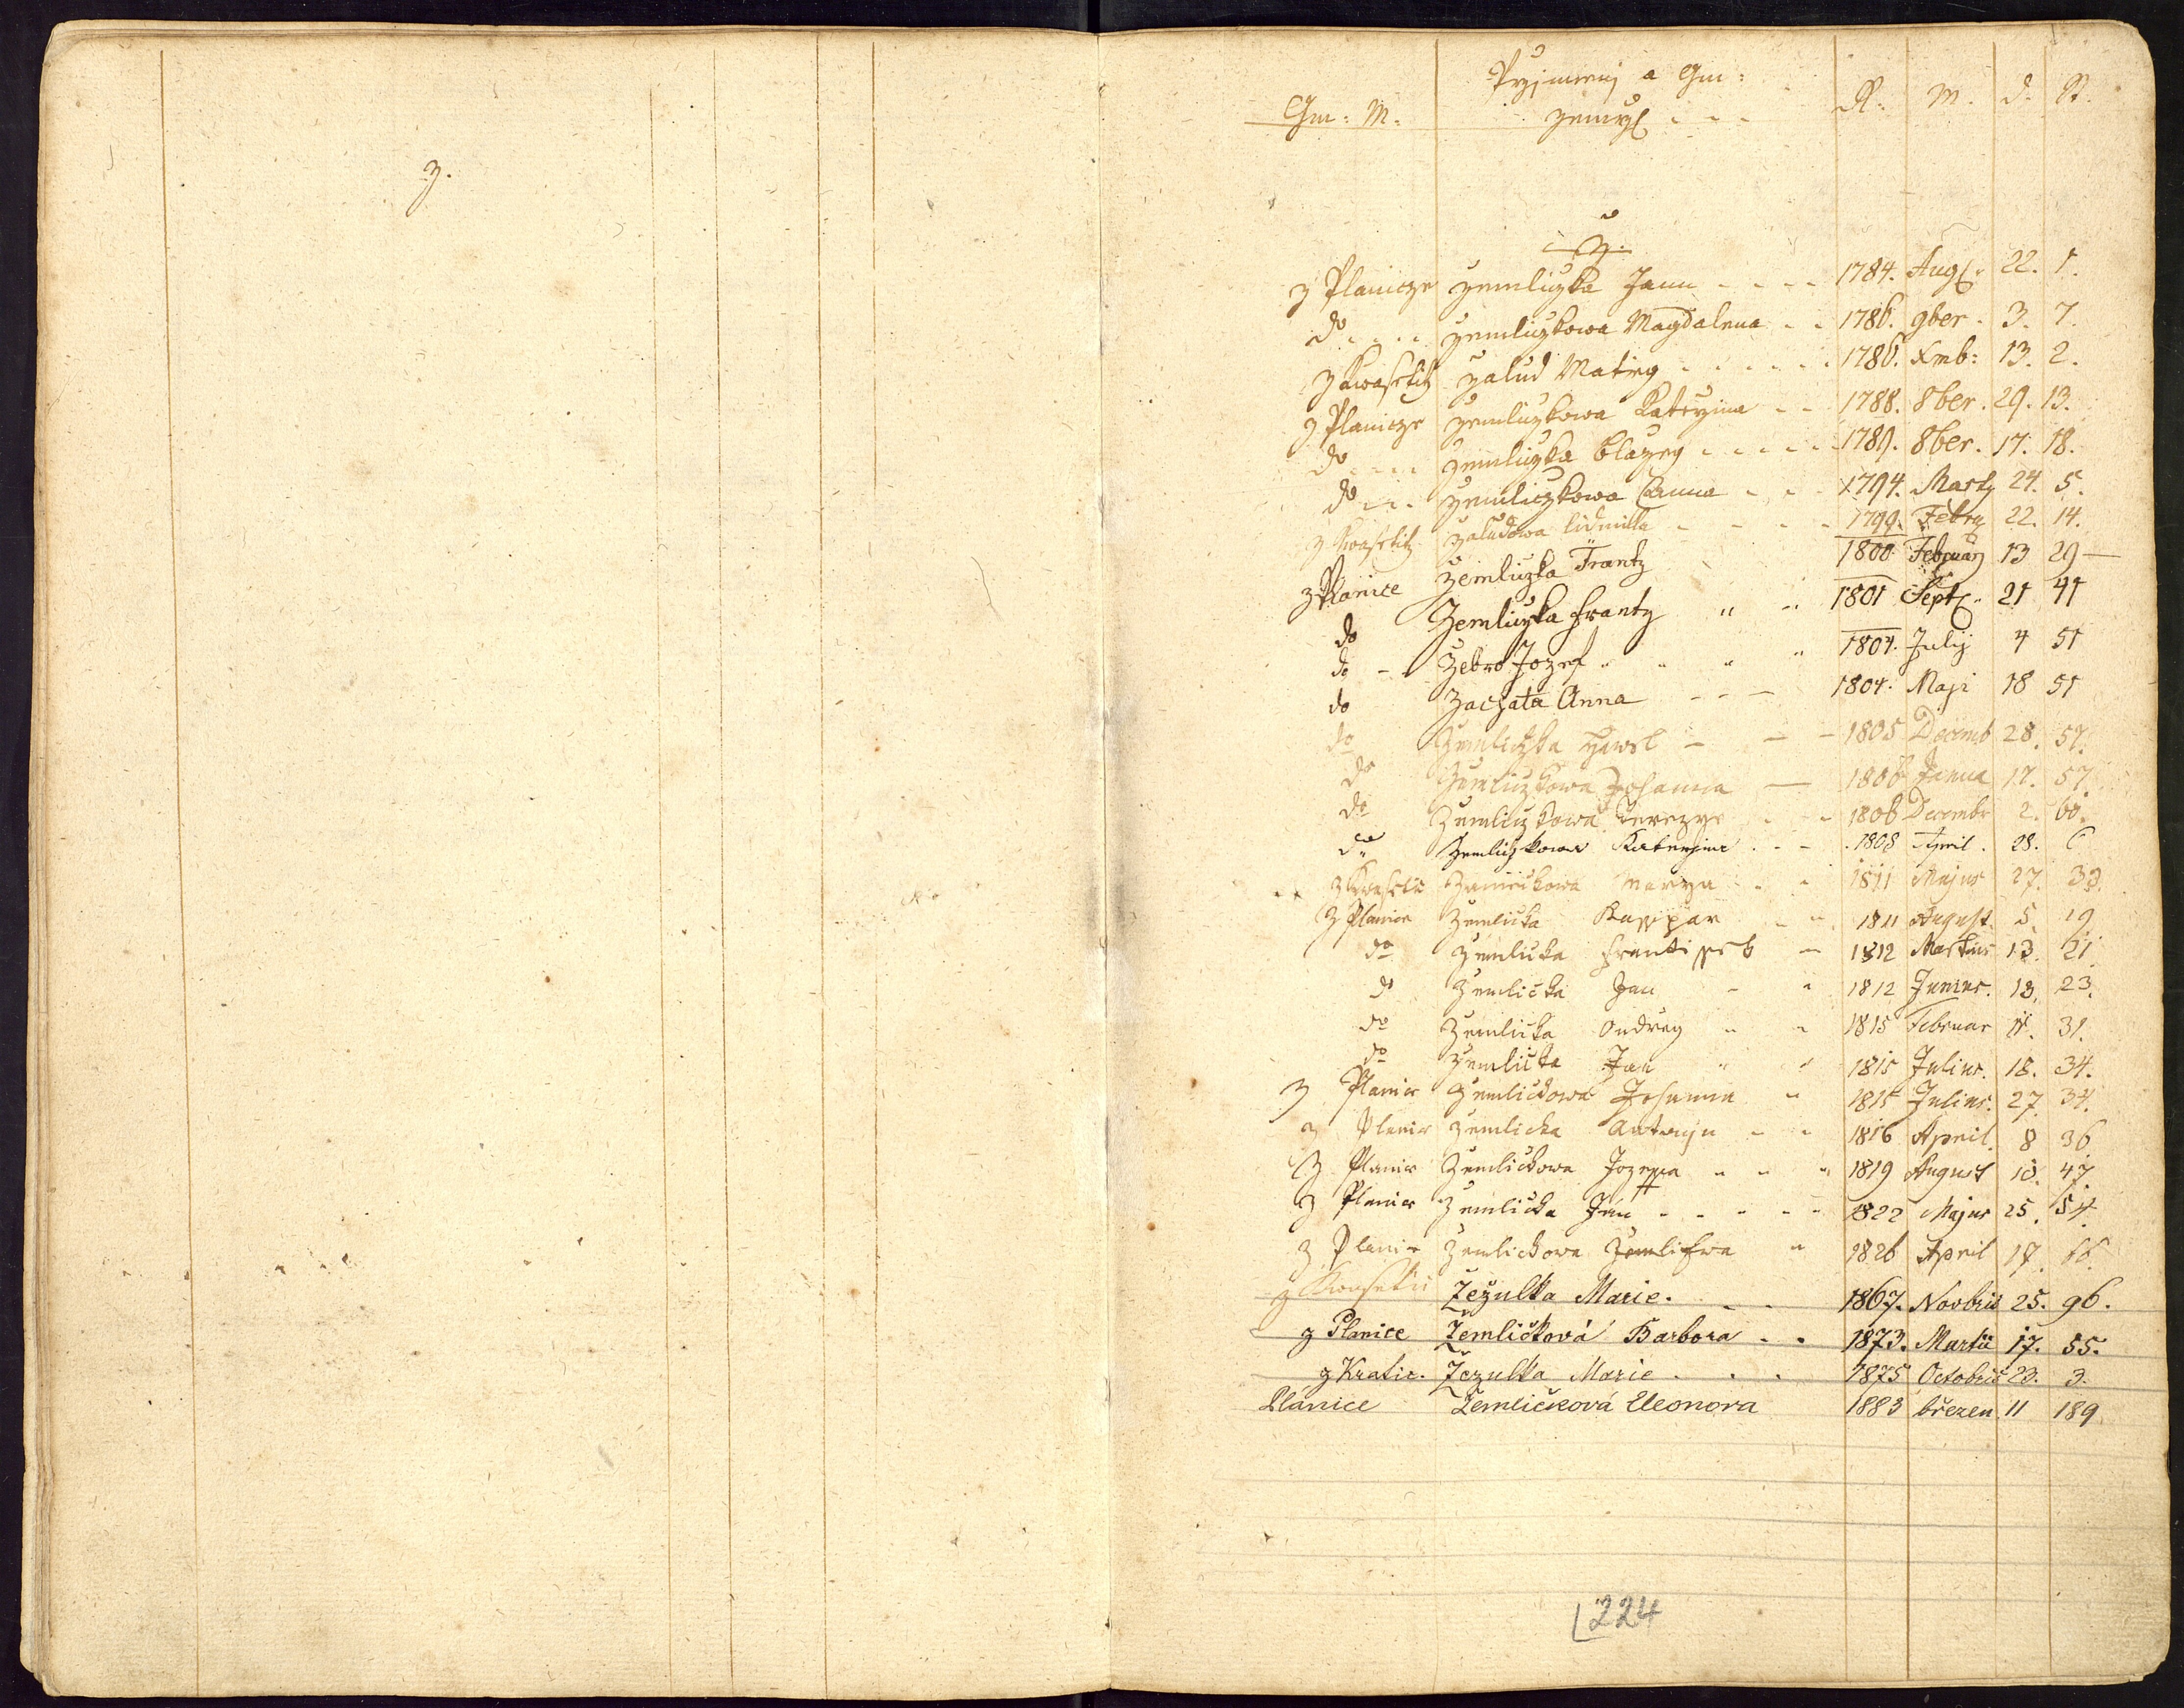 z.
Przjmenj a Gm:
Gm: M. zemrzl R: M. d. St.
Ž.
z Planicze Žemliczka Jann 1784. Aug. 22. 1.
do Žemliczkowa Magdalena 1786. 9ber. 3. 7.
z Kwasetitz Žalud Matieg 1786. Xmb: 13. 2.
z Planicze Žemliczkowa Katržina 1788. 8ber. 29. 13.
do Žemliczka Blažeg 1789. 8ber. 17. 18.
do Žemliczkowa Anna 1794. Marty 24. 5.
z Kwasetitz Žaludowa Lidmilla 1799. Febry 22. 14.
z Planice Žemliczka Frantz 1800 Februarj 13 29
do Žemliczka Frantz 1801 Sept. 21 41
do Žebro Jozef 1804. Julij 4 51
do Zachata Anna 1804. Maji 18 51
do Žemliczka Hawel 1805 Decemb 28. 57.
do Žemliczkowa Johanna 1806 Janua 17. 57.
do Žemliczkowa Terezye 1806 Decembr 2. 60.
do Žemliczkowa Katerzina 1808 April. 28. 6
z Kwasetic Marya 1811 Majus 27. 33.
z Planice Žemlička Kasspar 1811 August. 5. 19.
do Žemlička Frantissek 1812 Martius 13. 21.
do Žemlička Jan 1812 Junius. 13. 23.
do Žemlička Ondreg 1815 Februar 31.
do Žemlička Jan 1815 Julius. 18. 34.
z Planic Žemličkowa Johanna 1815 Julius. 27. 34.
z Planic Žemlicka Antonjn 1816 April 8 36
z Planic Žemlickowa Jozeffa 1819 August 10. 47.
z Planic Žemlicka Jan 1822 Majus 25. 54.
z Planic Žemlickowa 1826 April 17.
z Kwasetic Žežulka Marie. 1867. Novbris 25. 96.
z Planice Žemličková Barbora 1873. Martii 17. 55.
z Kratic. Žežulka Marie 1875 Octobris 23. 3.
Plánice Žemličková Eleonora 1883 březen 11 189
224